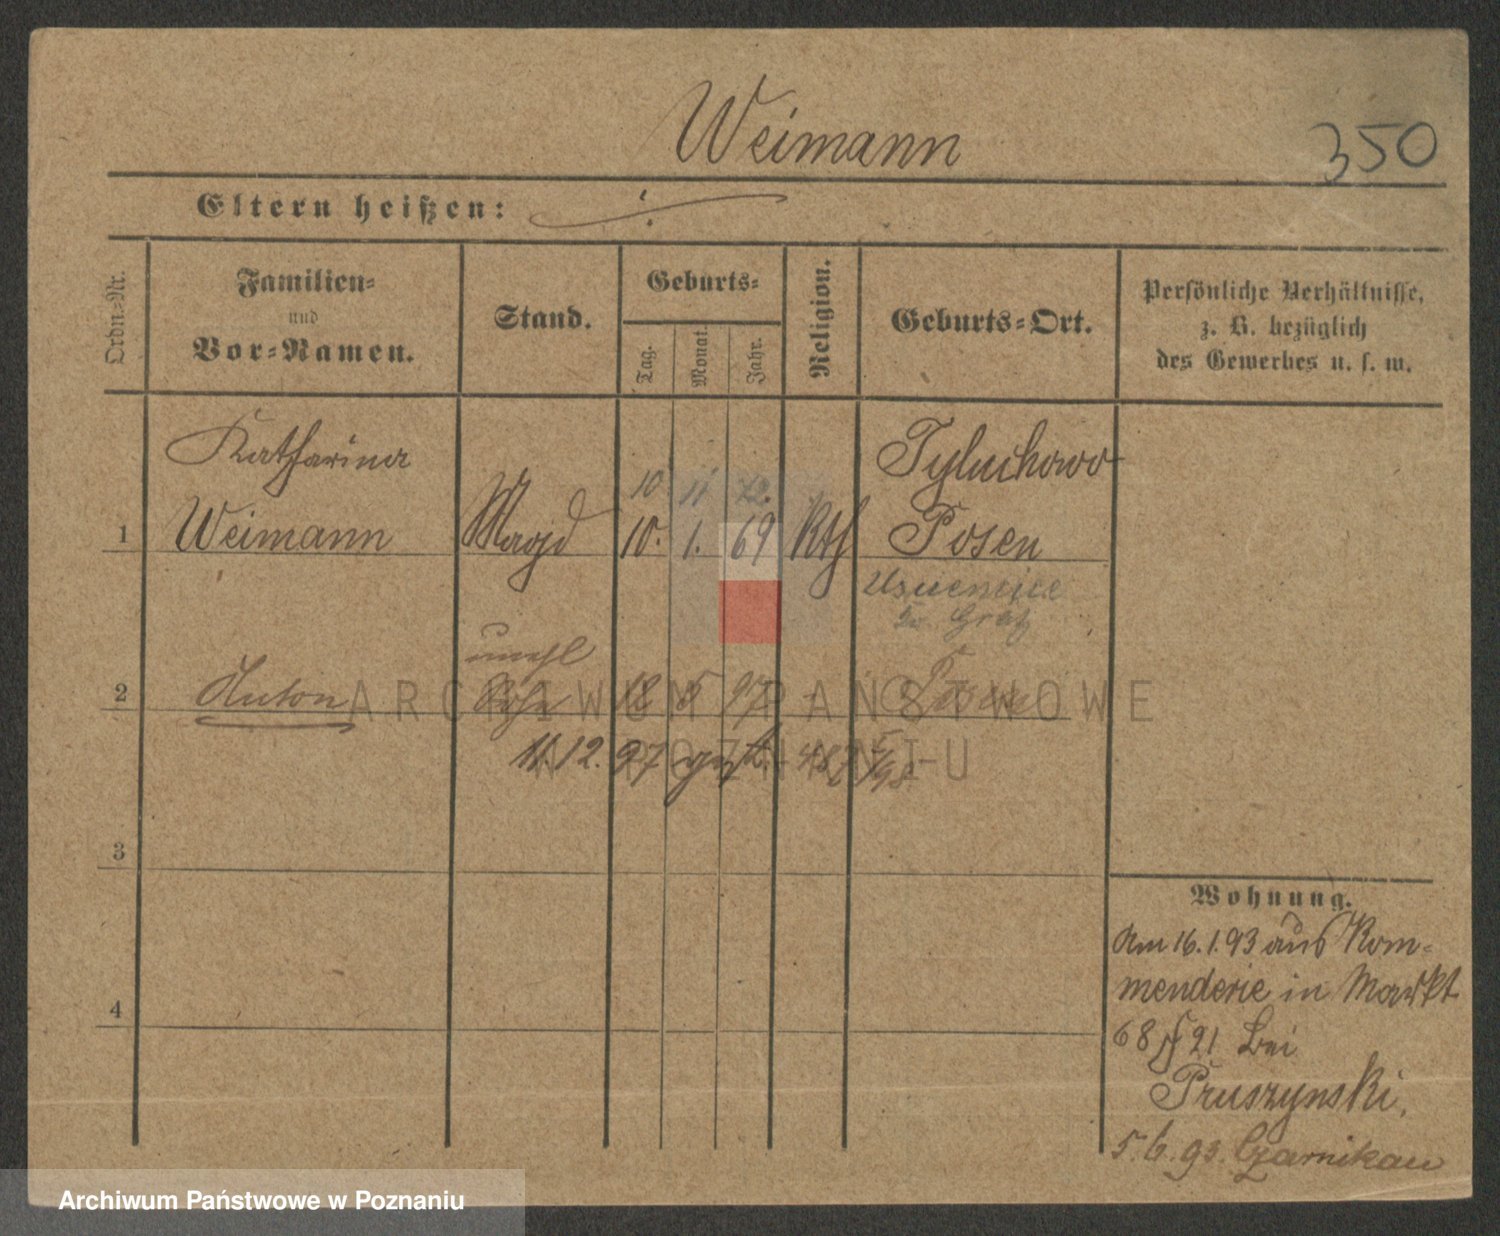 Weimann
350
Eltern heißen:
Ordn.-Nr.
Familien-
und
Vor-Namen.
Stand.
Geburts-
Tag.
Monat.
Jahr.
Religion.
Geburts-Ort.
Persönliche Verhältnisse,
z. B. bezüglich
des Gewerbes u. s. w.
Katharina
Tyluchowo
10 11 72.
1 Weimann Magd 10. 1. 69 Kth Posen
unehl
2 Anton Sohn 18 5 97 - Posen
11.12.97 gest.
3
4
Wohnung.
Am 16.1.93 aus Kom-
menderie in Markt
68 21 bei
Pruszynski.
5.6.93 Czarnikau
ARCHIWUM PAŃSTWOWE
W POZNANIU
Archiwum Państwowe w Poznaniu